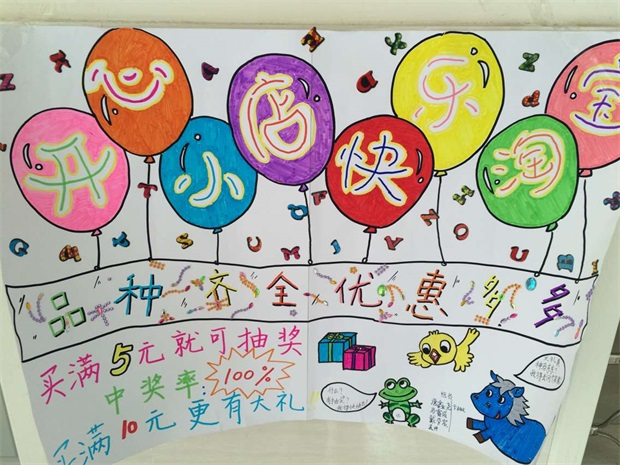 开心小店快乐淘宝
品种齐全 优惠多多
买满5元就可抽奖
中奖率:100%
买满10元更有大礼